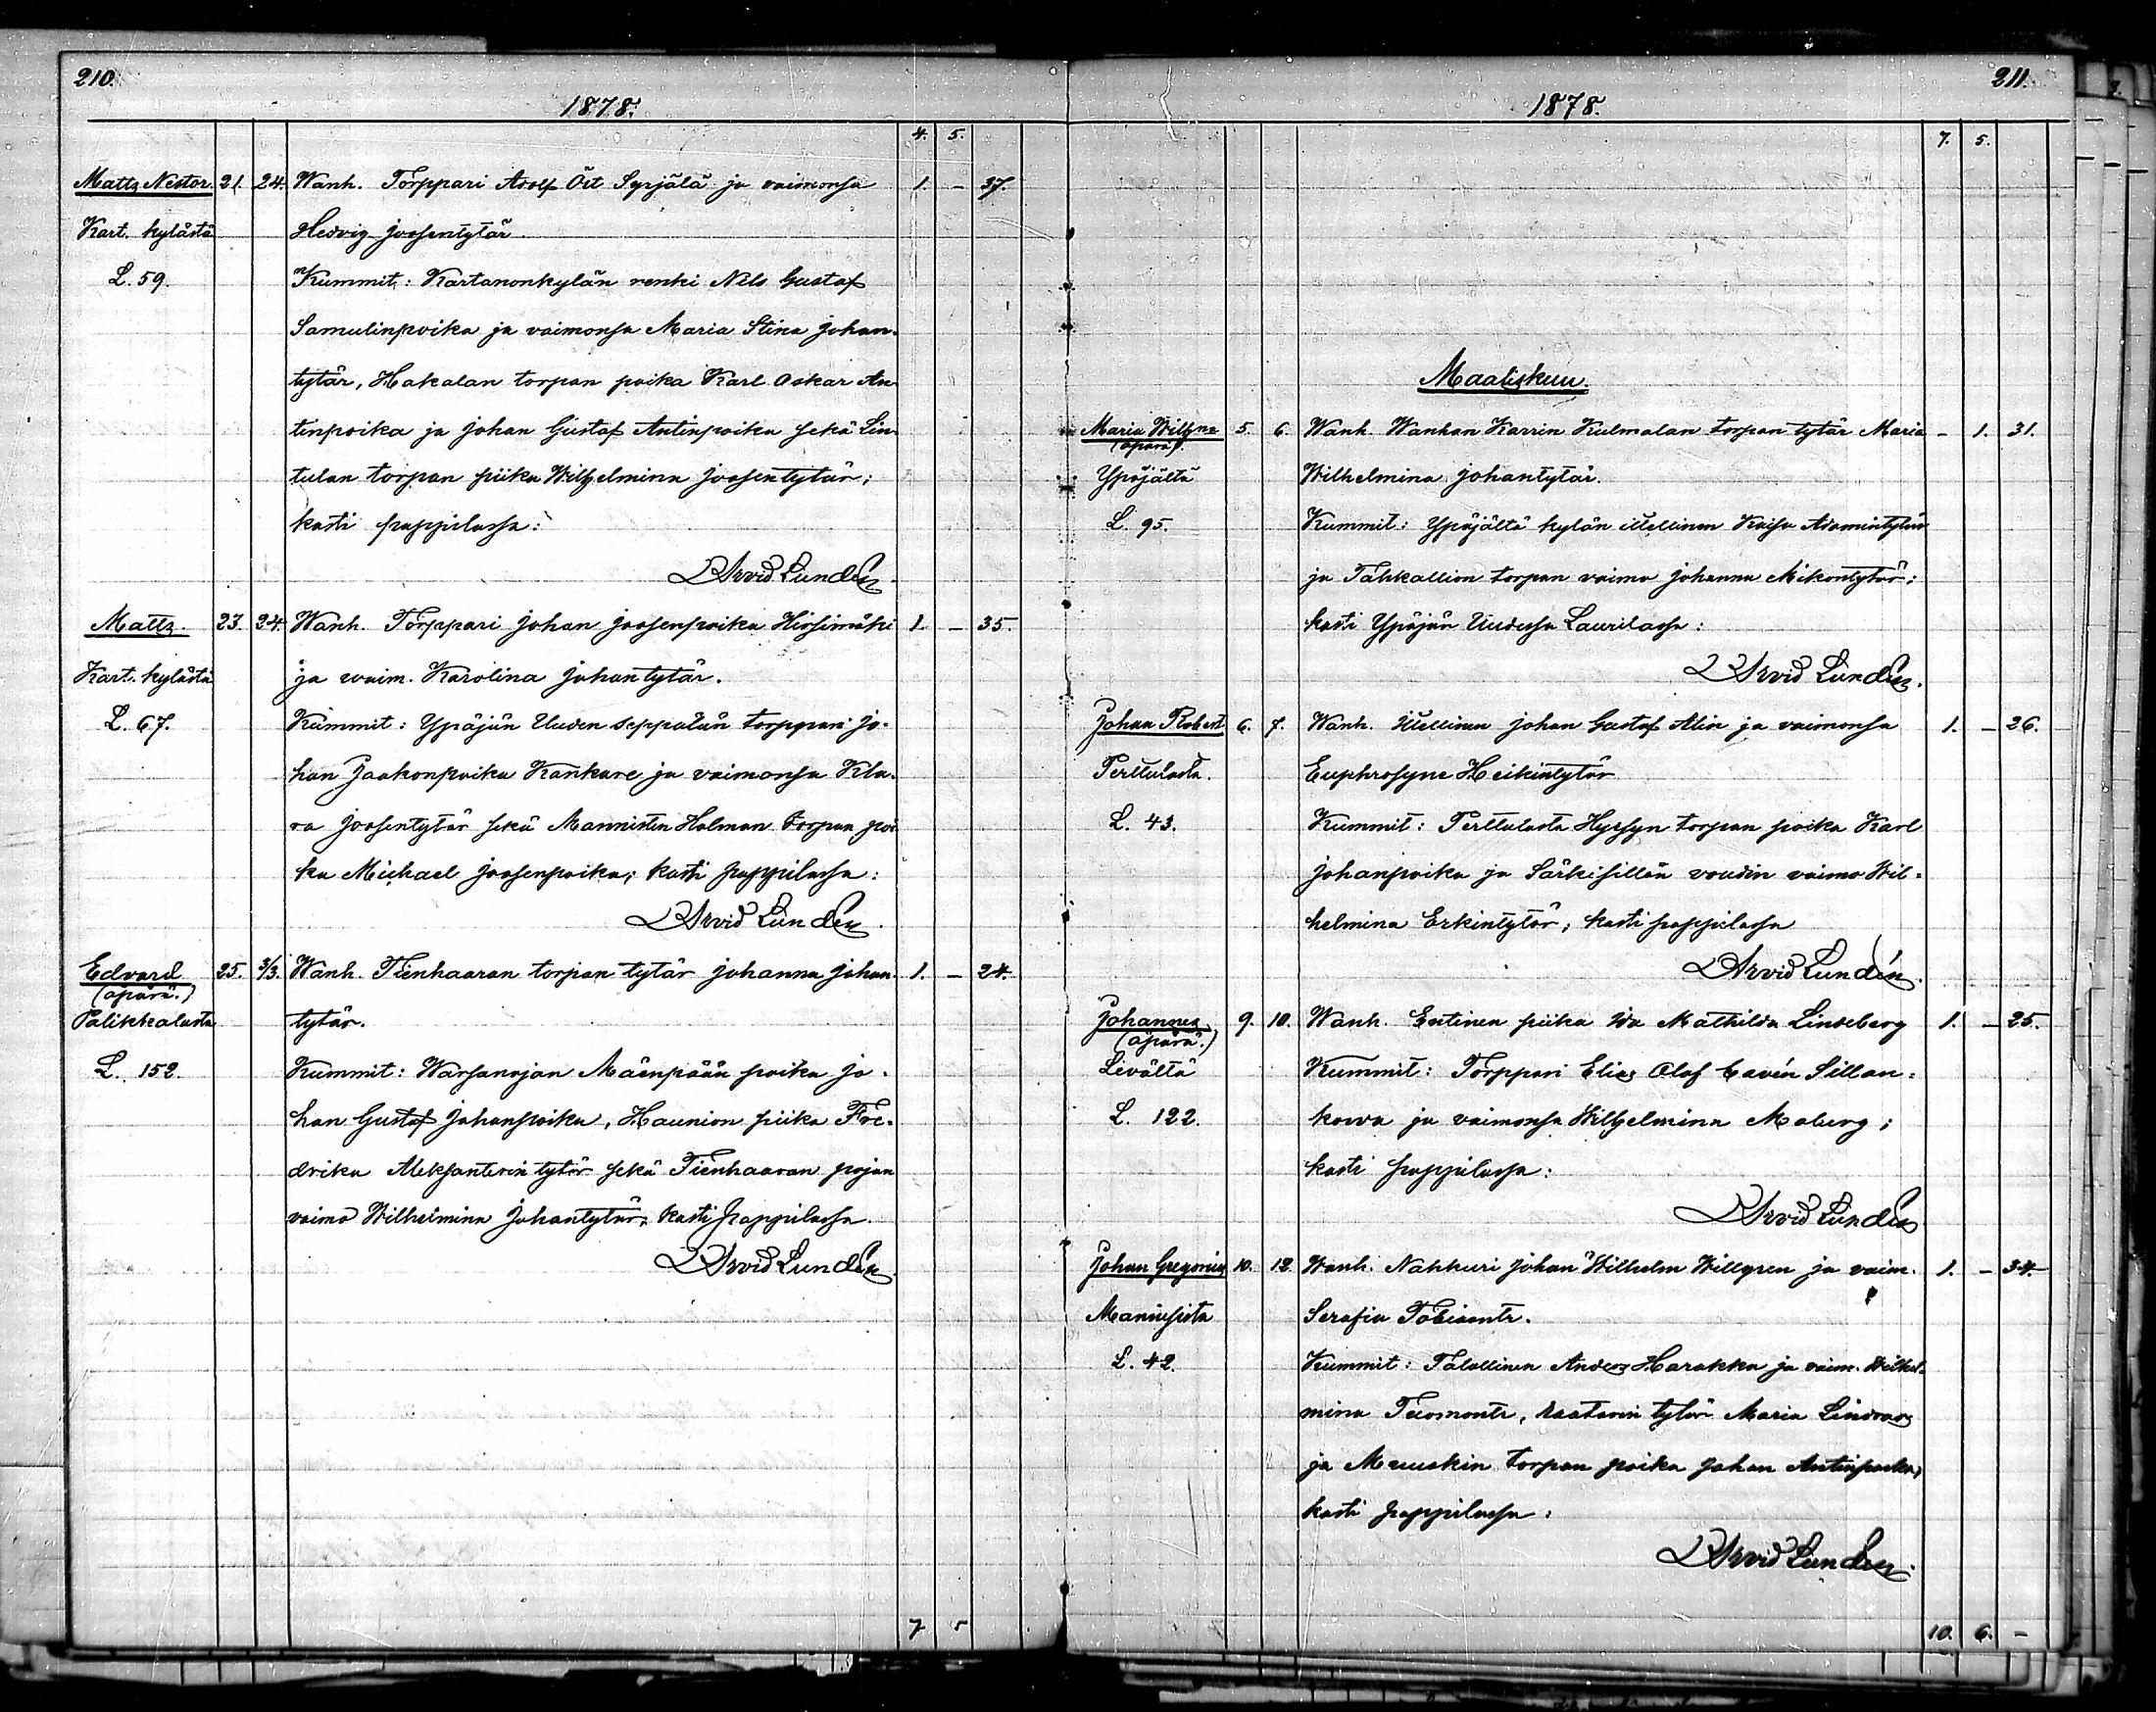 210.
1878.
4. 5.
Matts Nestor. 21. 24. Wanh. Torppari Adolf Öst Syrjälä ja vaimonsa 1. – 37.
Kart. kylästä Hedvig Joosentytär
L. 59. Kummit: Kartanonkylän renki Nils Gustaf
Samulinpoika ja vaimonsa Maria Stina Johan-
tytär, Hakalan torpan poika Karl Oskar An-
tinpoika ja Johan Gustaf Antinpoika sekä Lin-
tulan torpan piika Wilhelmina Joosentytär;
kasti pappilassa:
Arvid Lundén
Matts. 23. 24. Wanh. Torppari Johan Joosenpoika Hirsimäki 1. – 35.
Kart. kylästä ja vaim. Karolina Johantytär.
L. 67. Kummit: Ypäjän Uuden seppälän torppari Jo-
han Jaakonpoika Kankare ja vaimonsa Kla-
ra Joosentytär sekä Mannisten Holman torpan poi-
ka Michael Joosenpoika; kasti pappilassa:
Arvid Lundén.
Edvard 25. 3/3. Wanh. Tienhaaran torpan tytär Johanna Johan- 1. – 24.
(äpärä.)
Palikkalasta tytär.
L. 152. Kummit: Warsanojan Mäenpään poika Jo-
han Gustaf Johanpoika, Haunion piika Fre-
drika Aleksanterin tytär sekä Tienhaaran pojan
vaimo Wilhelmina Johantytär; kasti pappilassa.
Arvid Lundén
7 5
211.
1878.
7. 5.
Maaliskuu.
Maria Wilhna 5. 6. Wanh. Wanhan Karrin Kulmalan torpan tytär Maria – 1. 31.
(äpärä).
Ypäjältä Wilhelmina Johantytär.
L. 95. Kummit: Ypäjältä kylän itsellinen Kaisa Adamintytär
ja Tähkallion torpan vaimo Johanna Mikontytär;
kasti Ypäjän Uudessa Laurilassa:
Arvid Lundén.
Johan Robert 6. 7. Wanh. Itsellinen Johan Gustaf Alin ja vaimonsa 1. – 26.
Perttulasta. Euphrosyne Heikintytär
L. 43. Kummit: Perttulasta Hyrsyn torpan poika Karl
Johanpoika ja Särkisillän voudin vaimo Wil-
helmina Erkintytär; kasti pappilassa
Arvid Lundén.
Johannes 9. 10. Wanh. Entinen piika Ida Mathilda Lindeberg 1. – 25.
(äpärä.)
Levältä Kummit: Torppari Elias Olof Cavén Sillan-
L. 122. korva ja vaimonsa Wilhelmina Moberg;
kasti pappilassa:
Arvid Lundén
Johan Gregorius 10. 12. Wanh. Nahkuri Johan Wilhelm Willgren ja vaim. 1. – 34.
Manisista Serafia Tobiantr.
L. 42. Kummit: Talollinen Anders Harakka ja vaim. Wilhel-
mina Tuomontr, raatarin tytär Maria Lindroos
ja torpan poika Johan Antinpoika;
kasti pappilassa:
Arvid Lundén.
10. 6. –